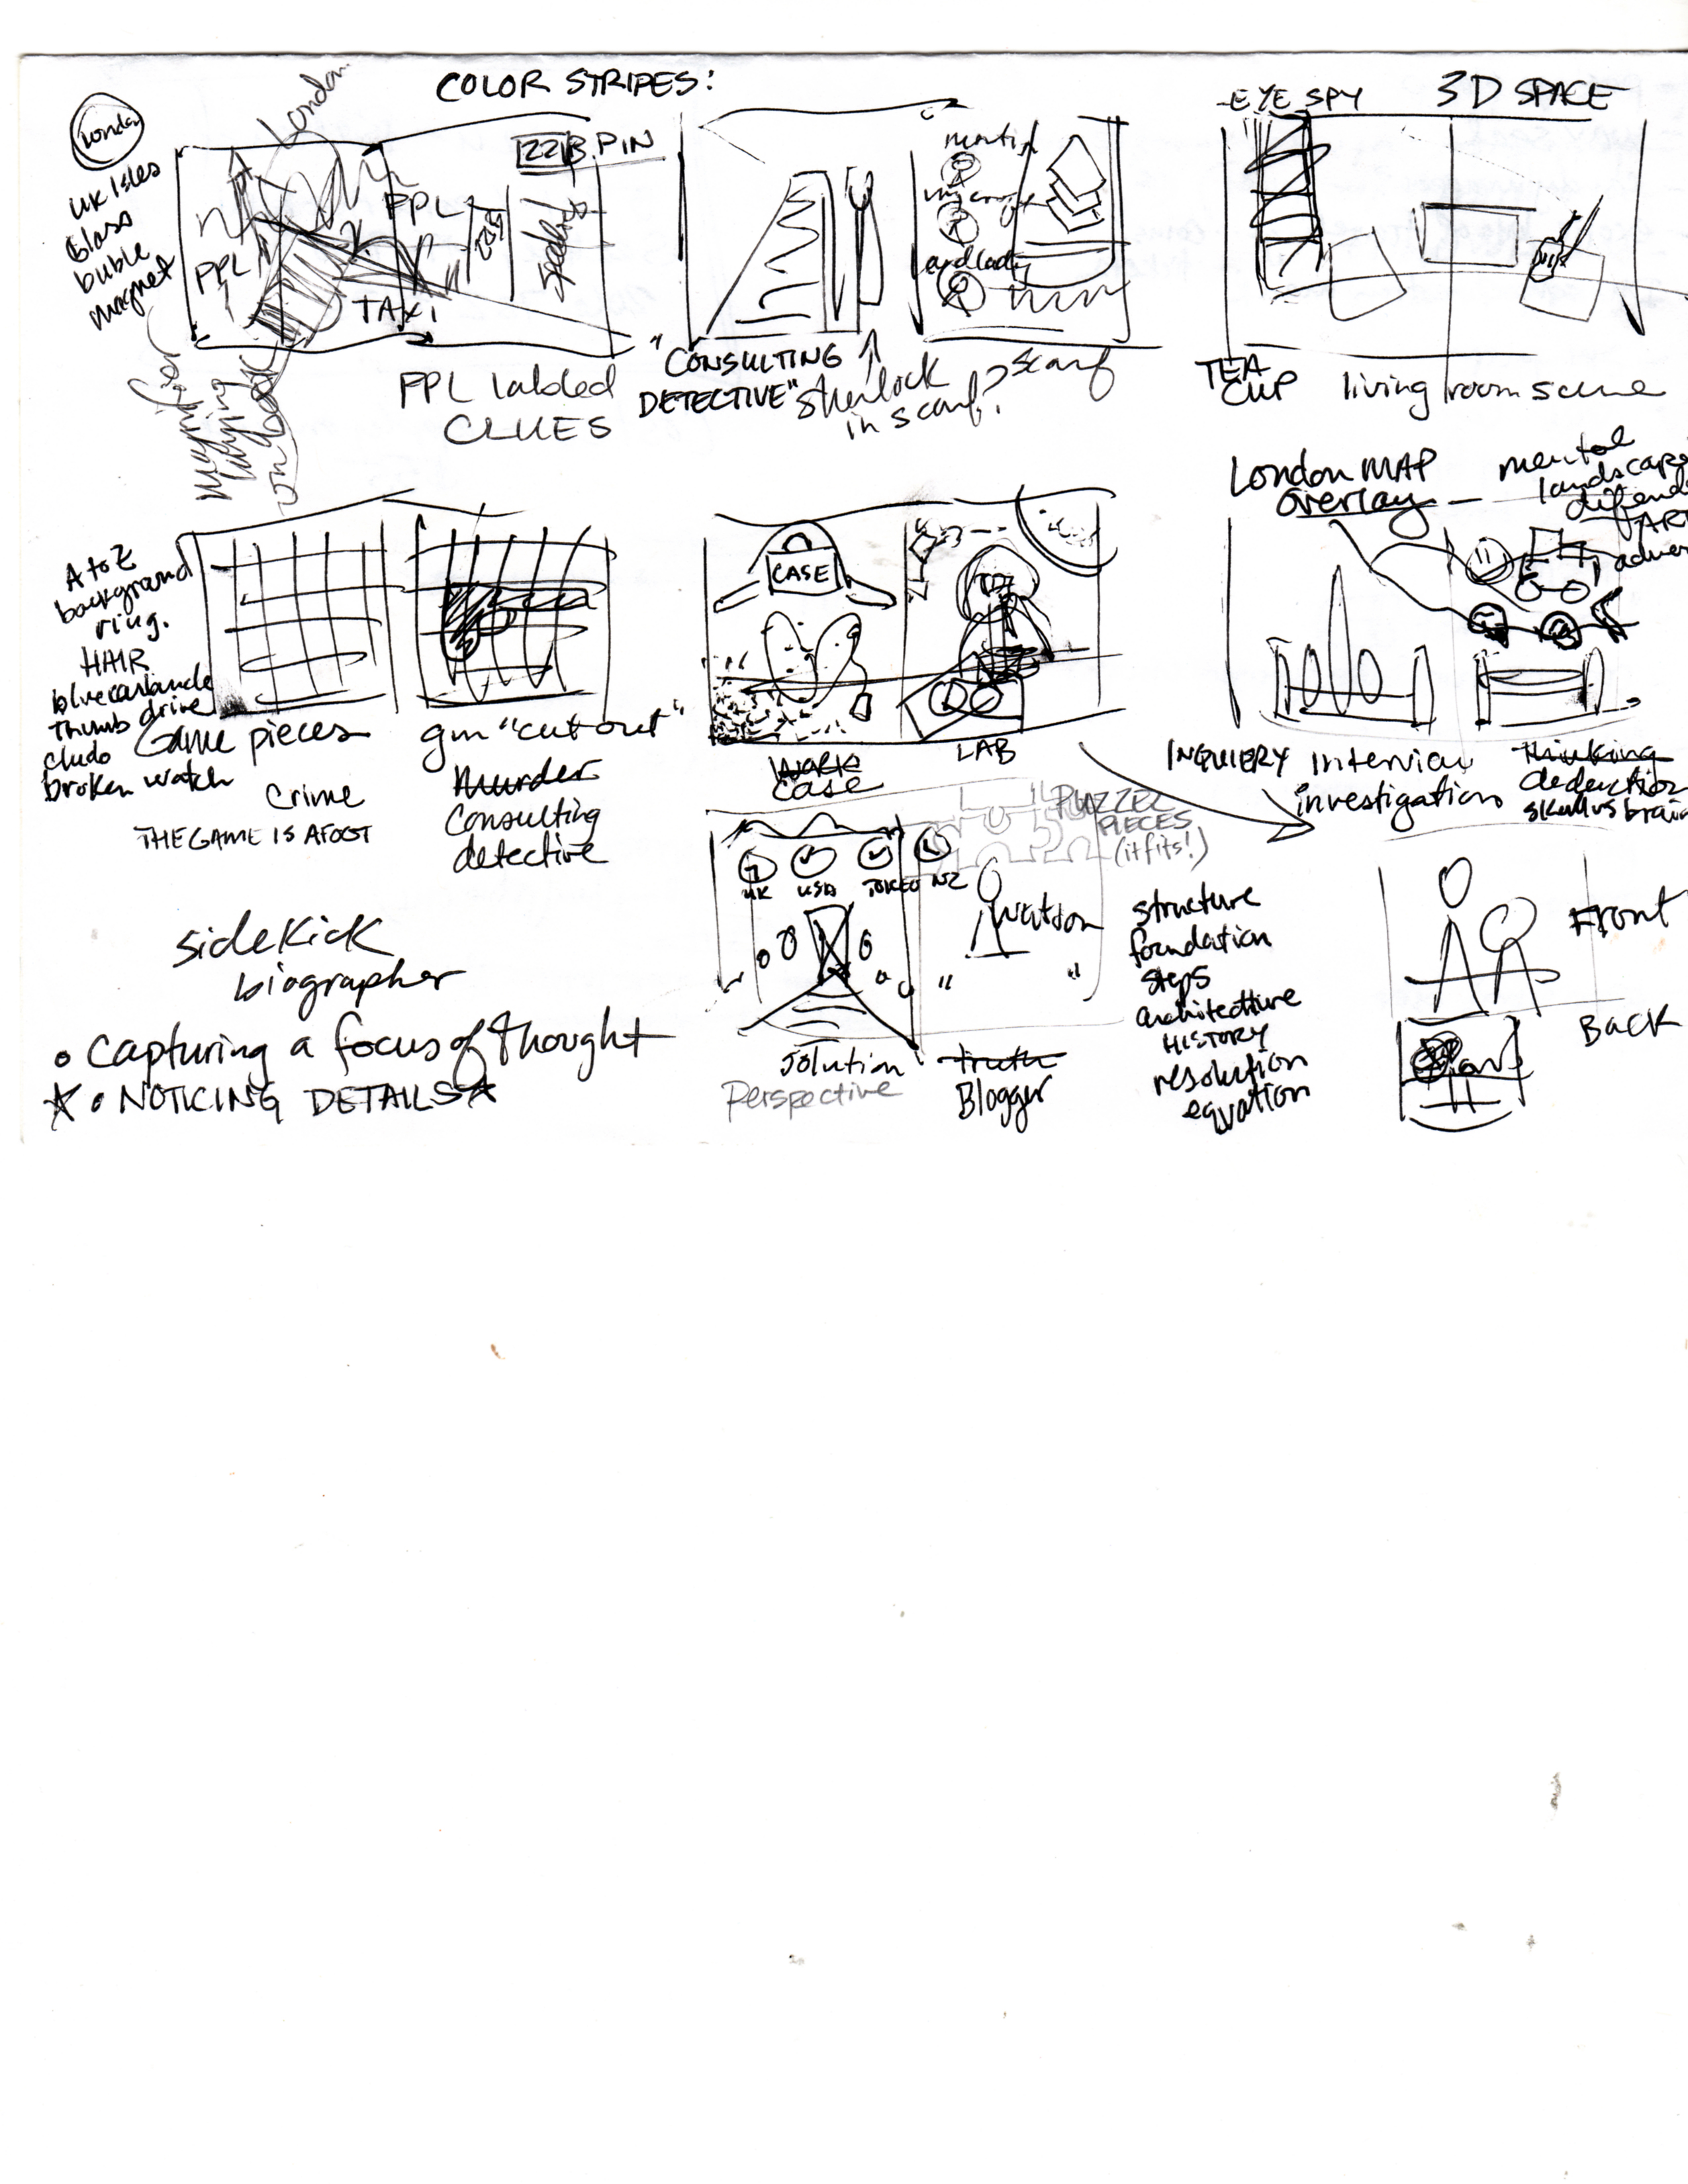 COLOR STRIPES:
-EYE SPY
3D SPACE
London
London
UK Isles
Glass
buble
magnet
221B PIN
PPL
PPL
TAXI
PPL labled
CLUES
"CONSULTING
DETECTIVE"
Sherlock
in scarf?
scarf
TEA
CUP
living room scene
Magnifier
laying
on book
London MAP
overlay -
mental
landscape
A to Z
background
ring.
HAIR
blue carbuncle
thumb drive
cludo
broken watch
Game pieces
Crime
THE GAME IS AFOOT
gun "cut out"
Murder
Consulting
detective
CASE
Work
Case
LAB
INQUIERY
Interview
investigation
thinking
deduction
skull vs brain
PUZZEL
PIECES
(it fits!)
UK USA TOKEO NZ
Watson
" "
Solution
Perspective
truth
Blogger
structure
foundation
steps
architecture
HISTORY
resolution
equation
Front
Back
sidekick
biographer
• Capturing a focus of thought
• NOTICING DETAILS